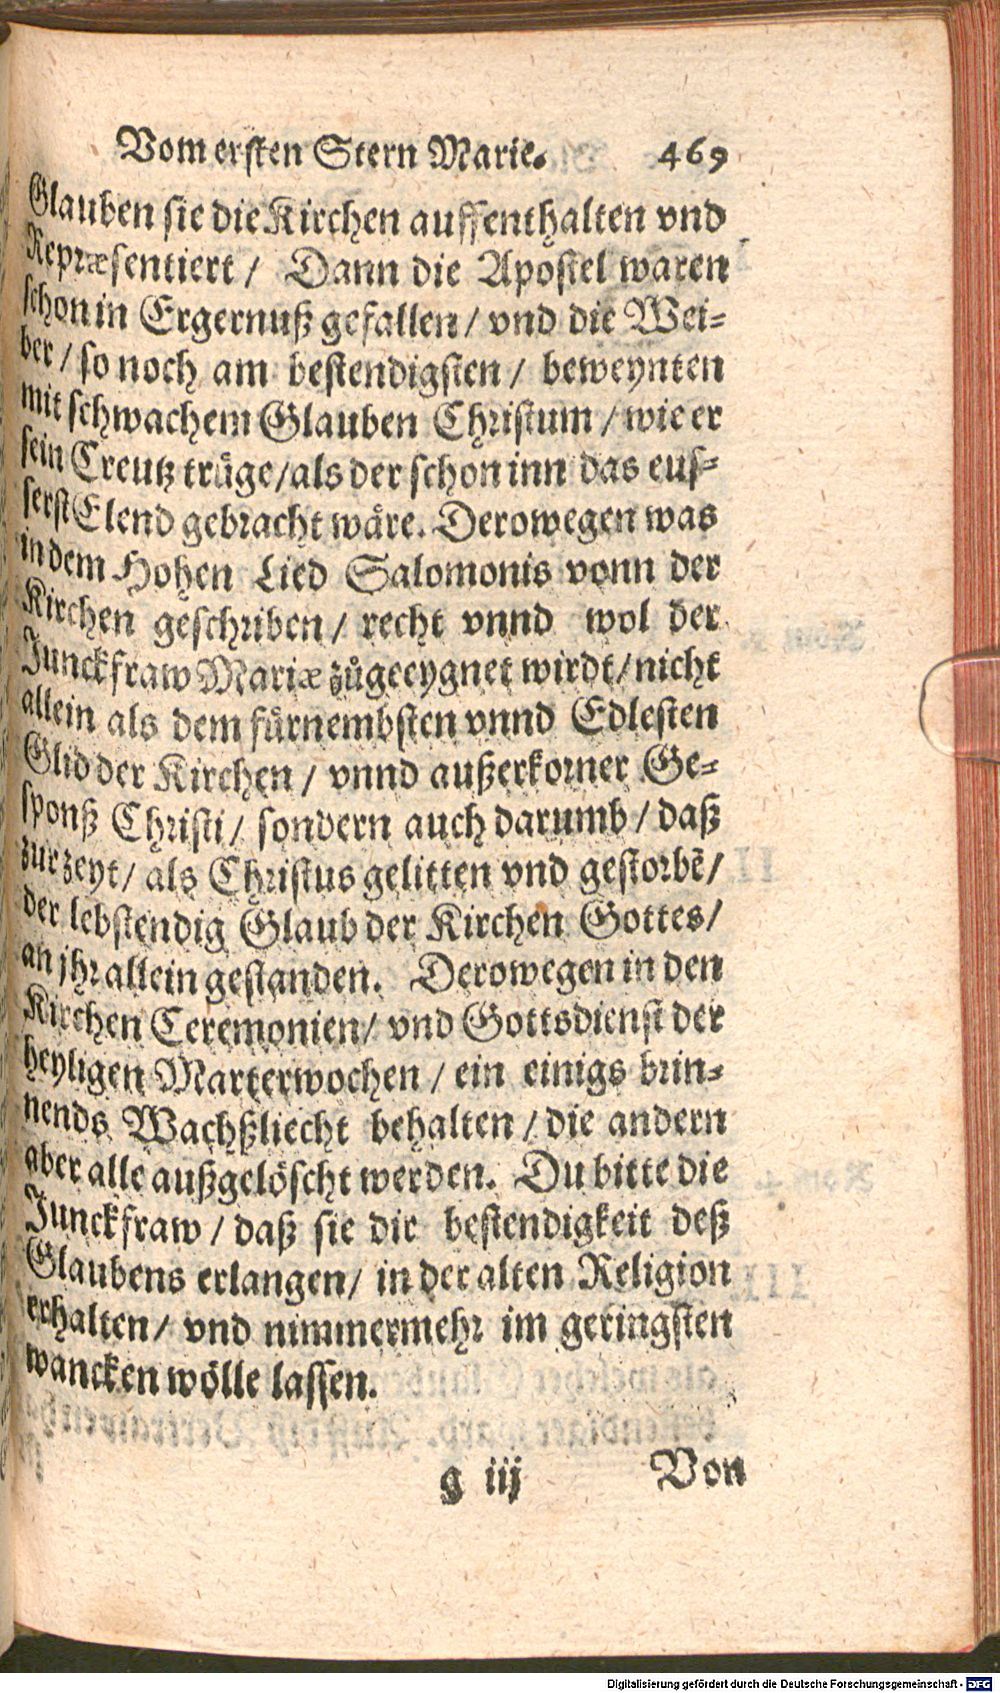 Vom ersten Stern Marie. 469
Glauben sie die Kirchen auffenthalten vnd
Repræsentiert / Dann die Apostel waren
schon in Ergernuß gefallen / vnd die Wei-
ber / so noch am bestendigsten / beweynten
mit schwachem Glauben Christum / wie er
sein Creutz trüge / als der schon inn das eus-
serst Elend gebracht wäre. Derowegen was
in dem Hohen Lied Salomonis vonn der
Kirchen geschriben / recht vnnd wol der
Junckfraw Mariæ zůgeeygnet wirdt / nicht
allein als dem fürnembsten vnnd Edlesten
Glid der Kirchen / vnnd außerkorner Ge-
sponß Christi / sondern auch darumb / daß
zur zeyt / als Christus gelitten vnd gestorbē /
der lebstendig Glaub der Kirchen Gottes /
an jhr allein gestanden. Derowegen in den
Kirchen Ceremonien / vnd Gottsdienst der
heyligen Marterwochen / ein einigs brin-
nends Wachßliecht behalten / die andern
aber alle außgelöscht werden. Du bitte die
Junckfraw / daß sie dir bestendigkeit deß
Glaubens erlangen / in der alten Religion
erhalten / vnd nimmermehr im geringsten
wancken wölle lassen.
g iij Von
Digitalisierung gefördert durch die Deutsche Forschungsgemeinschaft - DFG